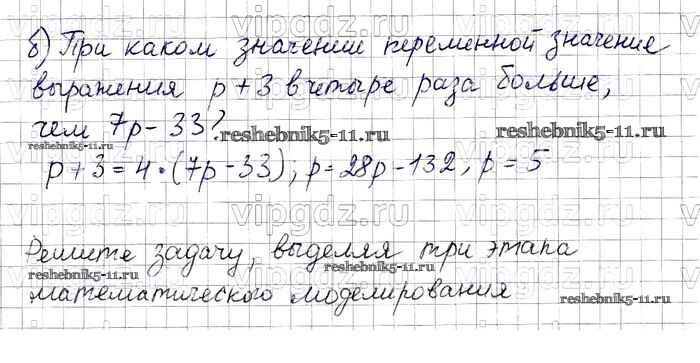 vipgdz.ru vipgdz.ru vipgdz.ru
б) При каком значении переменной значение
выражения p + 3 в четыре раза больше,
чем 7p - 33?
reshebnik5-11.ru reshebnik5-11.ru
reshebnik5-11.ru
p + 3 = 4 · (7p - 33); p = 28p - 132, p = 5
vipgdz.ru vipgdz.ru vipgdz.ru
Решите задачу, выделяя три этапа
reshebnik5-11.ru reshebnik5-11.ru
математического моделирования
reshebnik5-11.ru reshebnik5-11.ru